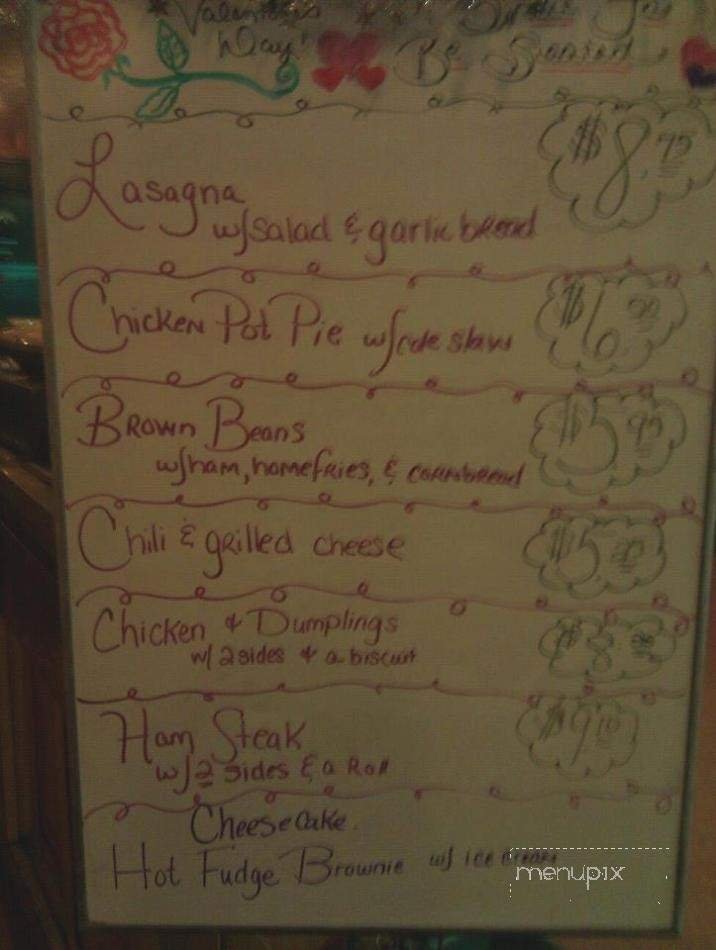 Valentine's
Day!
Be Seated
Lasagna
w/salad & garlic bread
$8.95
Chicken Pot Pie w/cole slaw
$6.
Brown Beans
w/ham, homefries, & cornbread
$5.95
Chili & grilled cheese
$5.
Chicken & Dumplings
w/ 2 sides & a biscuit
$8.
Ham Steak
w/ 2 sides & a Roll
$9
Cheesecake.
Hot Fudge Brownie w/ ice cream
menupix